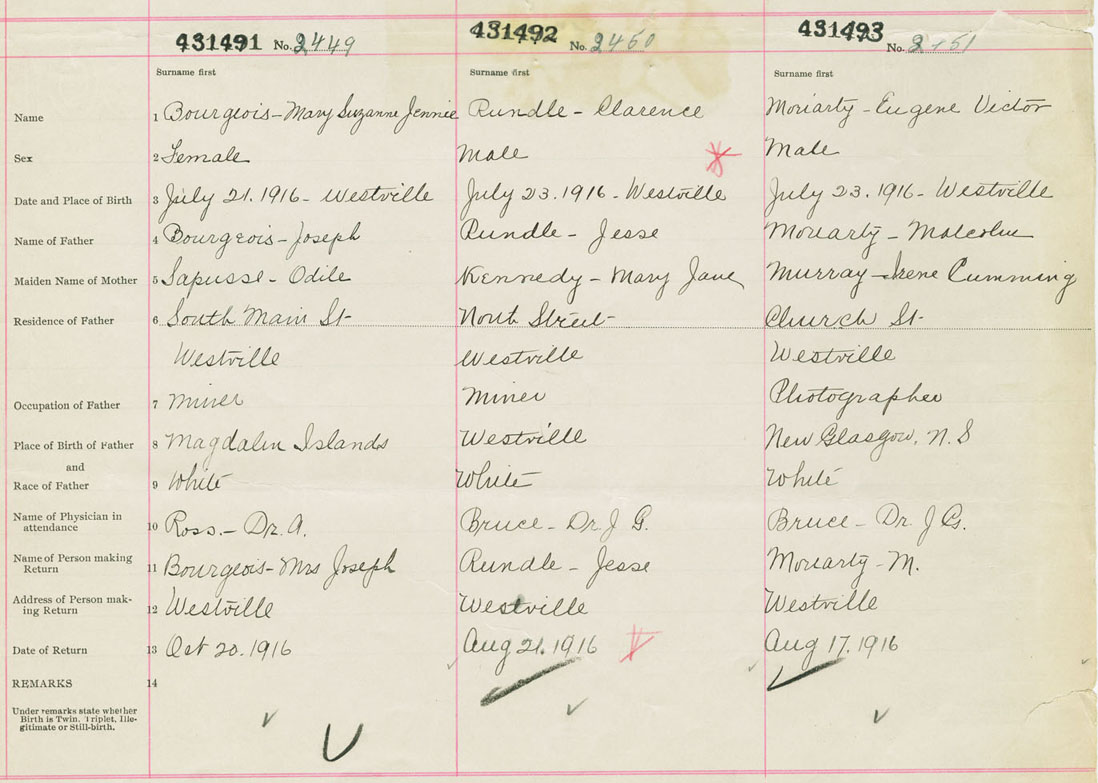 431491 No. 2449 431492 No. 2450 431493 No. 2451
Surname first Surname first Surname first
Name 1 Bourgeois - Mary Suzanne Jennie Rundle - Clarence Moriarty - Eugene Victor
Sex 2 Female Male Male
Date and Place of Birth 3 July 21. 1916 - Westville July 23. 1916 - Westville July 23. 1916 - Westville
Name of Father 4 Bourgeois - Joseph Rundle - Jesse Moriarty - Malcolm
Maiden Name of Mother 5 Sapusse - Odile Kennedy - Mary Jane Murray - Irene Cumming
Residence of Father 6 South Main St North Street Church St
Westville Westville Westville
Occupation of Father 7 Miner Miner Photographer
Place of Birth of Father 8 Magdalen Islands Westville New Glasgow, N.S
and
Race of Father 9 White White White
Name of Physician in
attendance 10 Ross. - Dr. A. Bruce - Dr. J G. Bruce - Dr. J G.
Name of Person making
Return 11 Bourgeois - Mrs Joseph Rundle - Jesse Moriarty - M.
Address of Person mak-
ing Return 12 Westville Westville Westville
Date of Return 13 Oct 20. 1916 Aug 21. 1916 Aug 17. 1916
REMARKS 14
Under remarks state whether
Birth is Twin, Triplet, Ille-
gitimate or Still-birth.